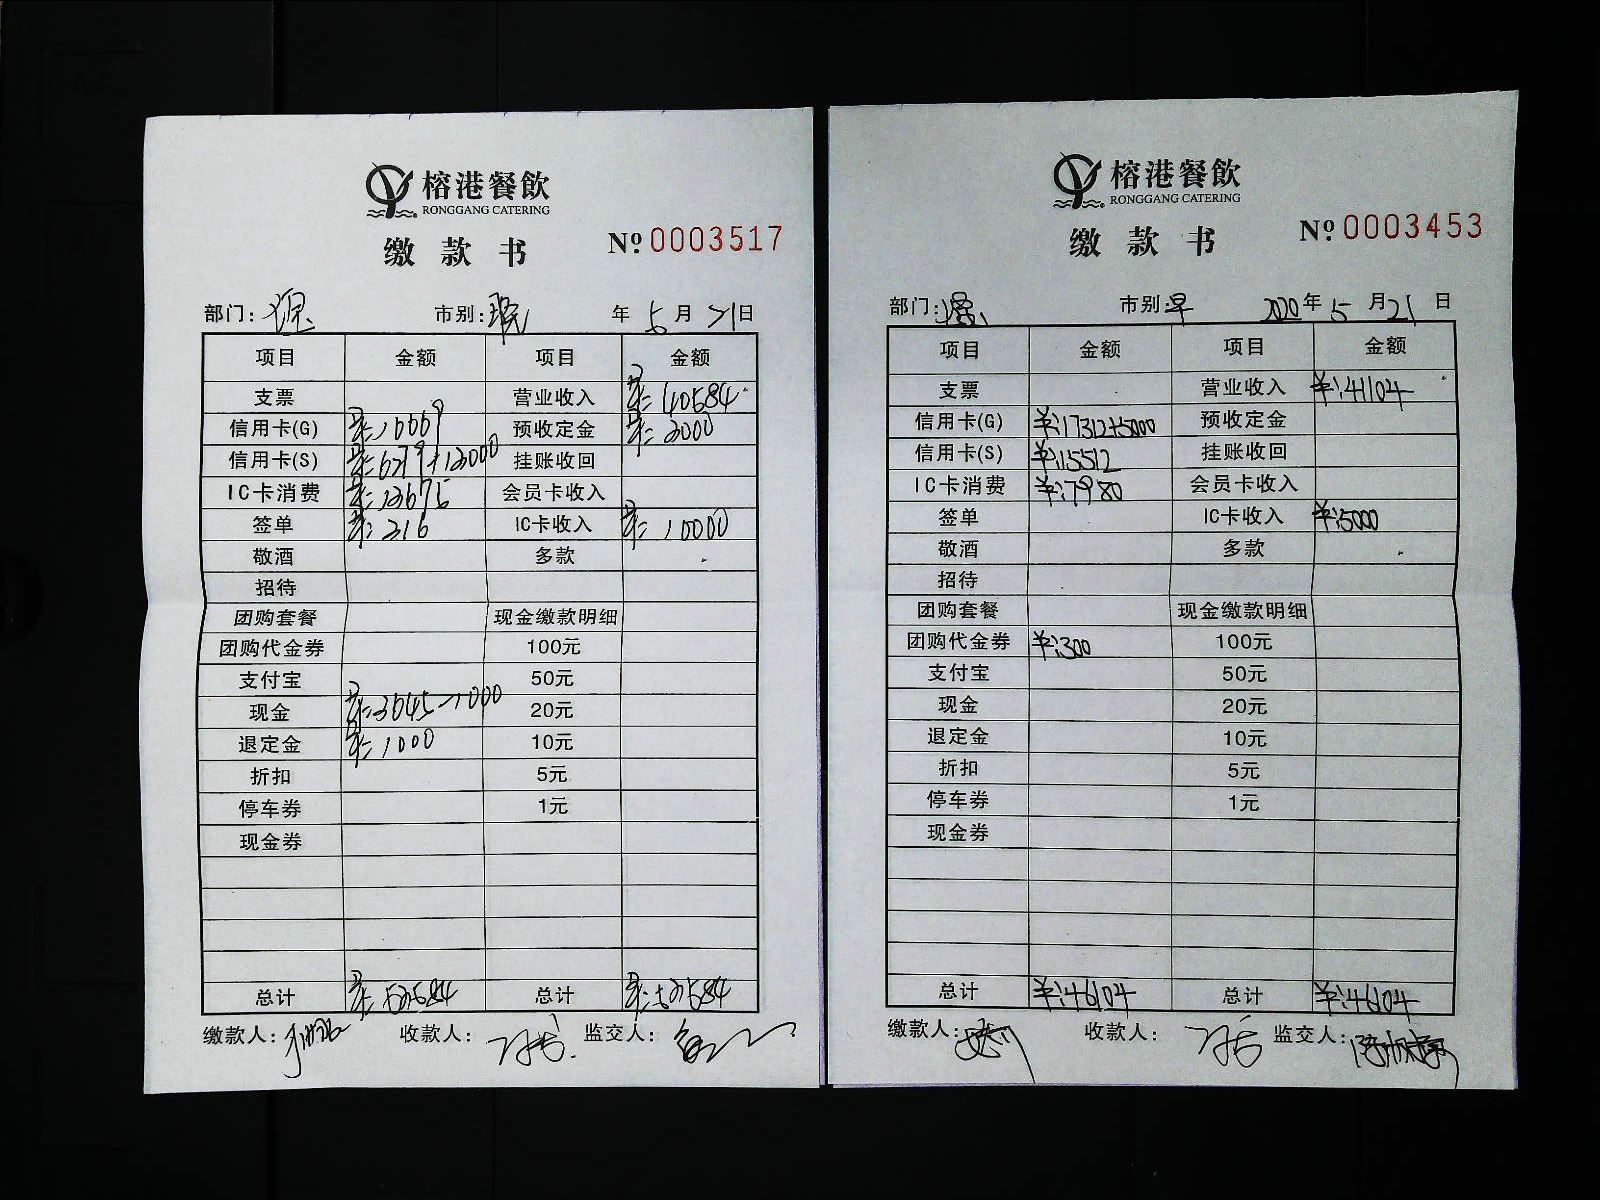 榕港餐飲
RONGGANG CATERING
缴款书
№ 0003517
部门: 市别: 年 5 月 21 日
项目 金额 项目 金额
支票 营业收入 ¥: 40584
信用卡(G) ¥: 16669 预收定金 ¥: 2000
信用卡(S) ¥: 6279+12000 挂账收回
IC卡消费 ¥: 13675 会员卡收入
签单 ¥: 216 IC卡收入 ¥: 10000
敬酒 多款
招待
团购套餐 现金缴款明细
团购代金券 100元
支付宝 50元
现金 ¥: 3745-1000 20元
退定金 ¥: 1000 10元
折扣 5元
停车券 1元
现金券
总计 ¥: 52584 总计 ¥: 52584
缴款人: 收款人: 监交人:
榕港餐飲
RONGGANG CATERING
缴款书
№ 0003453
部门: 市别: 早 2020 年 5 月 21 日
项目 金额 项目 金额
支票 营业收入 ¥:41104
信用卡(G) ¥:17312+5000 预收定金
信用卡(S) ¥:15512 挂账收回
IC卡消费 ¥:7980 会员卡收入
签单 IC卡收入 ¥:5000
敬酒 多款
招待
团购套餐 现金缴款明细
团购代金券 ¥:300 100元
支付宝 50元
现金 20元
退定金 10元
折扣 5元
停车券 1元
现金券
总计 ¥:46104 总计 ¥:46104
缴款人: 收款人: 监交人: